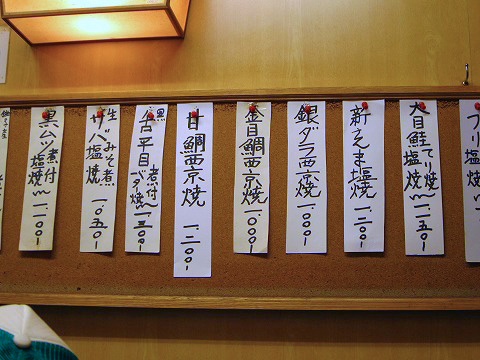 ブリ塩焼
大目鮭 てり焼 塩焼 一、一五〇-
新さんま塩焼 一、二〇〇-
銀ダラ西京焼 一、〇〇〇-
金目鯛西京焼 一、〇〇〇-
甘鯛西京焼 一、二〇〇-
黒舌平目 煮付 バタ焼 一、三〇〇-
生サバ みそ煮 塩焼 一、〇五〇-
黒ムツ 煮付 塩焼 一、一〇〇-